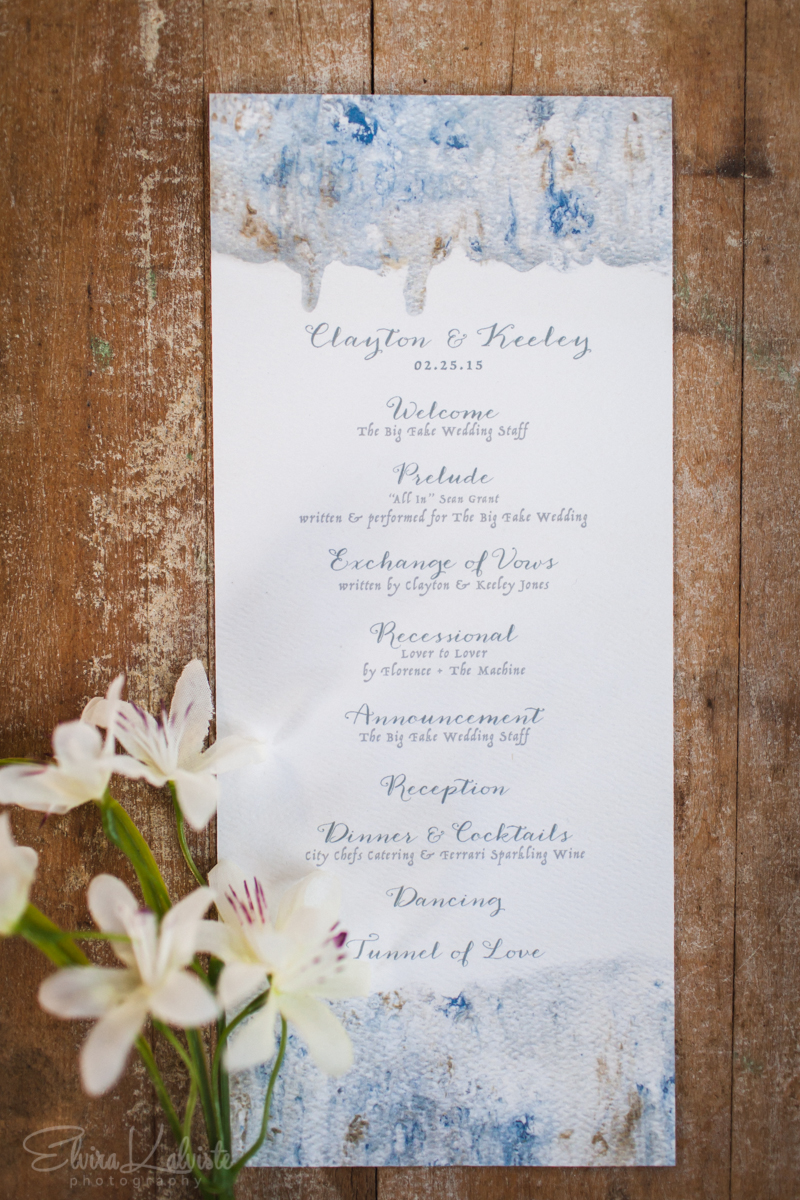 Clayton & Keeley
02.25.15
Welcome
The Big Fake Wedding Staff
Prelude
"All In" Sean Grant
written & performed for The Big Fake Wedding
Exchange of Vows
written by Clayton & Keeley Jones
Recessional
Lover to Lover
by Florence + The Machine
Announcement
The Big Fake Wedding Staff
Reception
Dinner & Cocktails
City Chefs Catering & Ferrari Sparkling Wine
Dancing
Tunnel of Love
Elvira Kalviste
photography